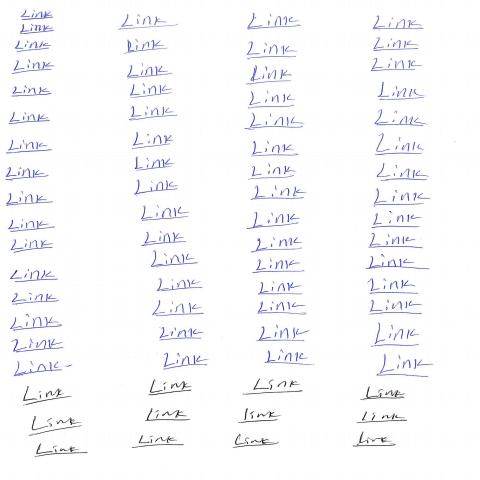 Link Link Link Link
Link
Link Link Link Link
Link Link Link Link
Link Link Link Link
Link Link Link Link
Link Link Link Link
Link Link Link Link
Link Link Link Link
Link Link Link Link
Link Link Link Link
Link Link Link Link
Link Link Link Link
Link Link Link Link
Link Link Link Link
Link Link Link Link
Link Link Link Link
Link Link link Link
Link Link Link Link